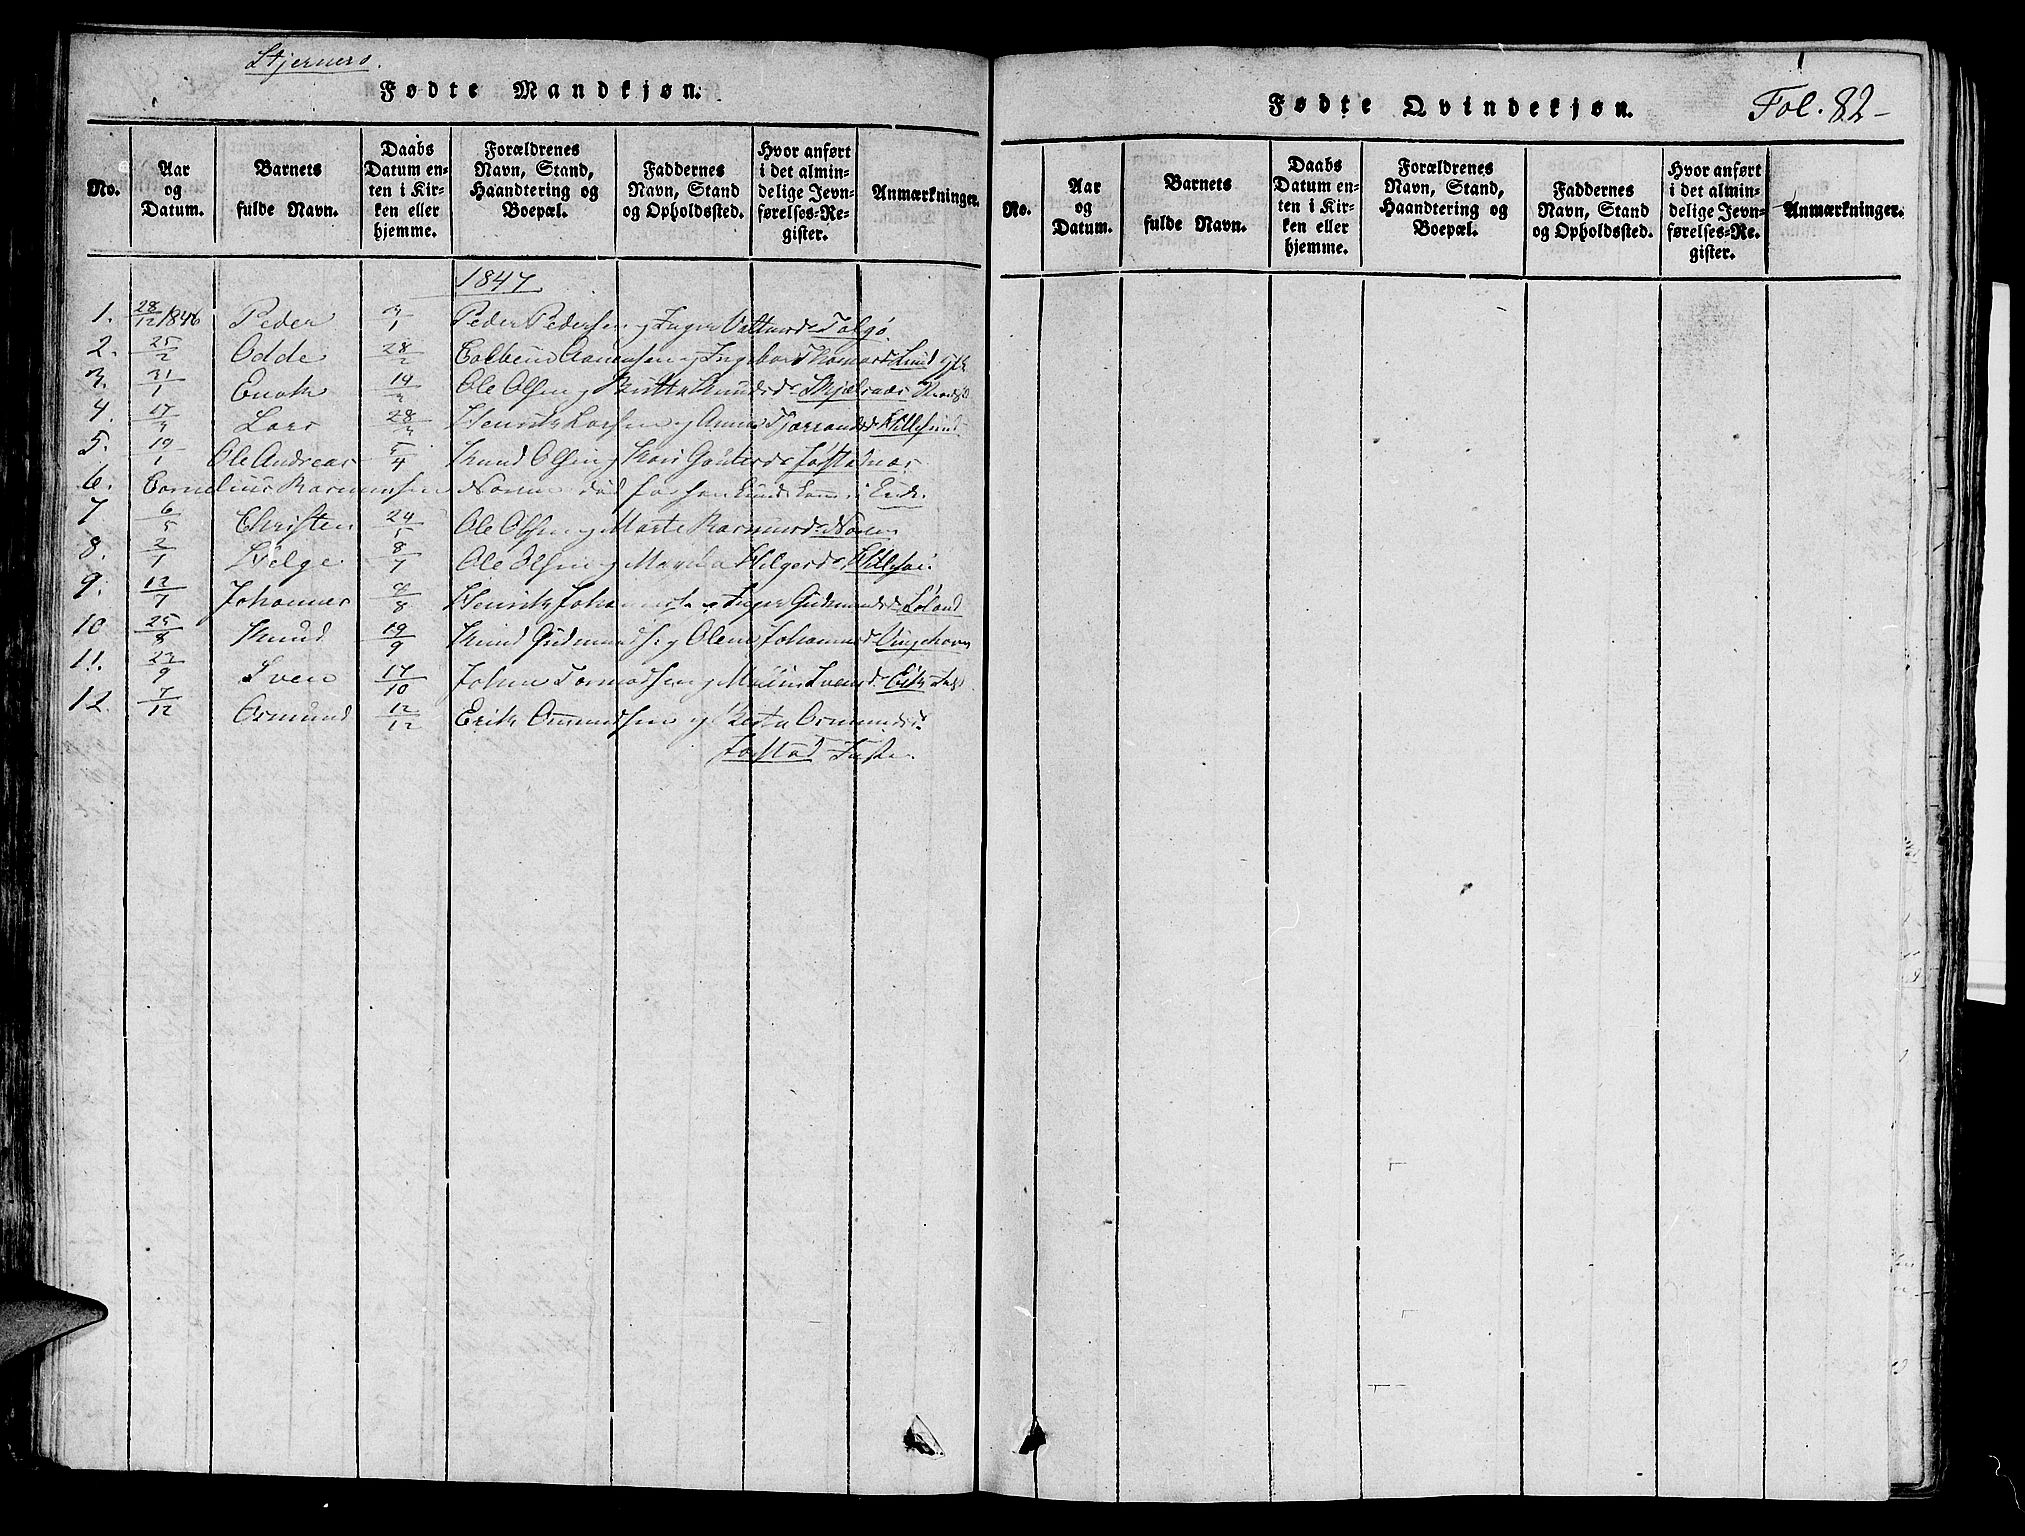 Stjernerø.
Fødte Mandkjøn.
No.
Aar og Datum.
Barnets fulde Navn.
Daabs Datum enten i Kirken eller hjemme.
Forældrenes Navn, Stand, Haandtering og Boepæl.
Faddernes Navn, Stand og Opholdssted.
Hvor anført i det almindelige Jevnførelses-Register.
Anmærkninger.
1847
1. 28/12 1846 Peder 3/1 Peder Pedersen og Inger Talgø
2. 25/2 Odde 28/2 Ingebor Lund
3. 31/1 Enok Ole Olsen og Britta Knudsd.
4. 17/3 Lars 28/3 Henrik Larsen og Anna Killesund
5. 19/1 Ole Andreas 5/4 Knud Olsen og Kari
6. Cornelius Rasmussen død
7 6/5 Christen 24/5 Ole Olsen og Marte Rasmusd.
8. 2/1 Helge 8/7 Ole Olsen og Helgesd.
9. 12/7 Johannes 8/8 Henrik og Inger Gudmundsd. Løland
10 25/8 Knud 19/9 Knud Gudmunds. og Olena Johannesd.
11. 23/9 Sven 17/10 John Svensd. Eik
12. 7/12 Osmund 12/12 Erik Osmundsen og Osmundsd.
Fødte Qvindekjøn.
Fol. 82-
No.
Aar og Datum.
Barnets fulde Navn.
Daabs Datum enten i Kirken eller hjemme.
Forældrenes Navn, Stand, Haandtering og Boepæl.
Faddernes Navn, Stand og Opholdssted.
Hvor anført i det almindelige Jevnførelses-Register.
Anmærkninger.